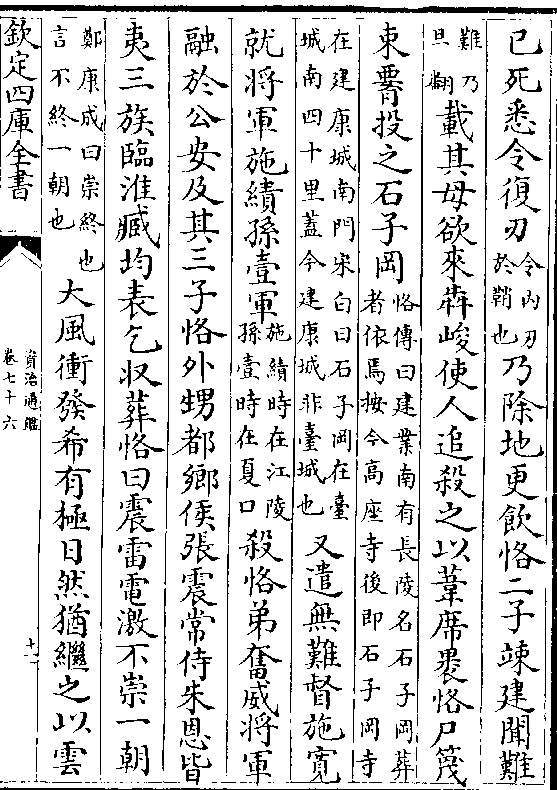 已死悉令復刃令内刃於鞘也乃除地更飲恪二子竦建聞難
難乃旦翻載其母欲來犇峻使人追殺之以葦席裹恪尸篾
束𦝫投之石子岡恪傳曰建業南有長陵名石子岡葬者依焉按今高座寺後即石子岡寺
在建康城南門宋白曰石子岡在臺城南四十里蓋今建康城非臺城也又遣無難督施寛
就将軍施績孫壹軍施績時在江陵孫壹時在夏口殺恪弟奮威将軍
融於公安及其三子恪外甥都鄉侯張震常侍朱恩皆
夷三族臨淮臧均表乞収葬恪曰震雷電激不崇一朝
鄭康成曰崇終也言不終一朝也大風衝發希有極日然猶繼之以雲
欽定四庫全書
資治通鑑
卷七十六
十一